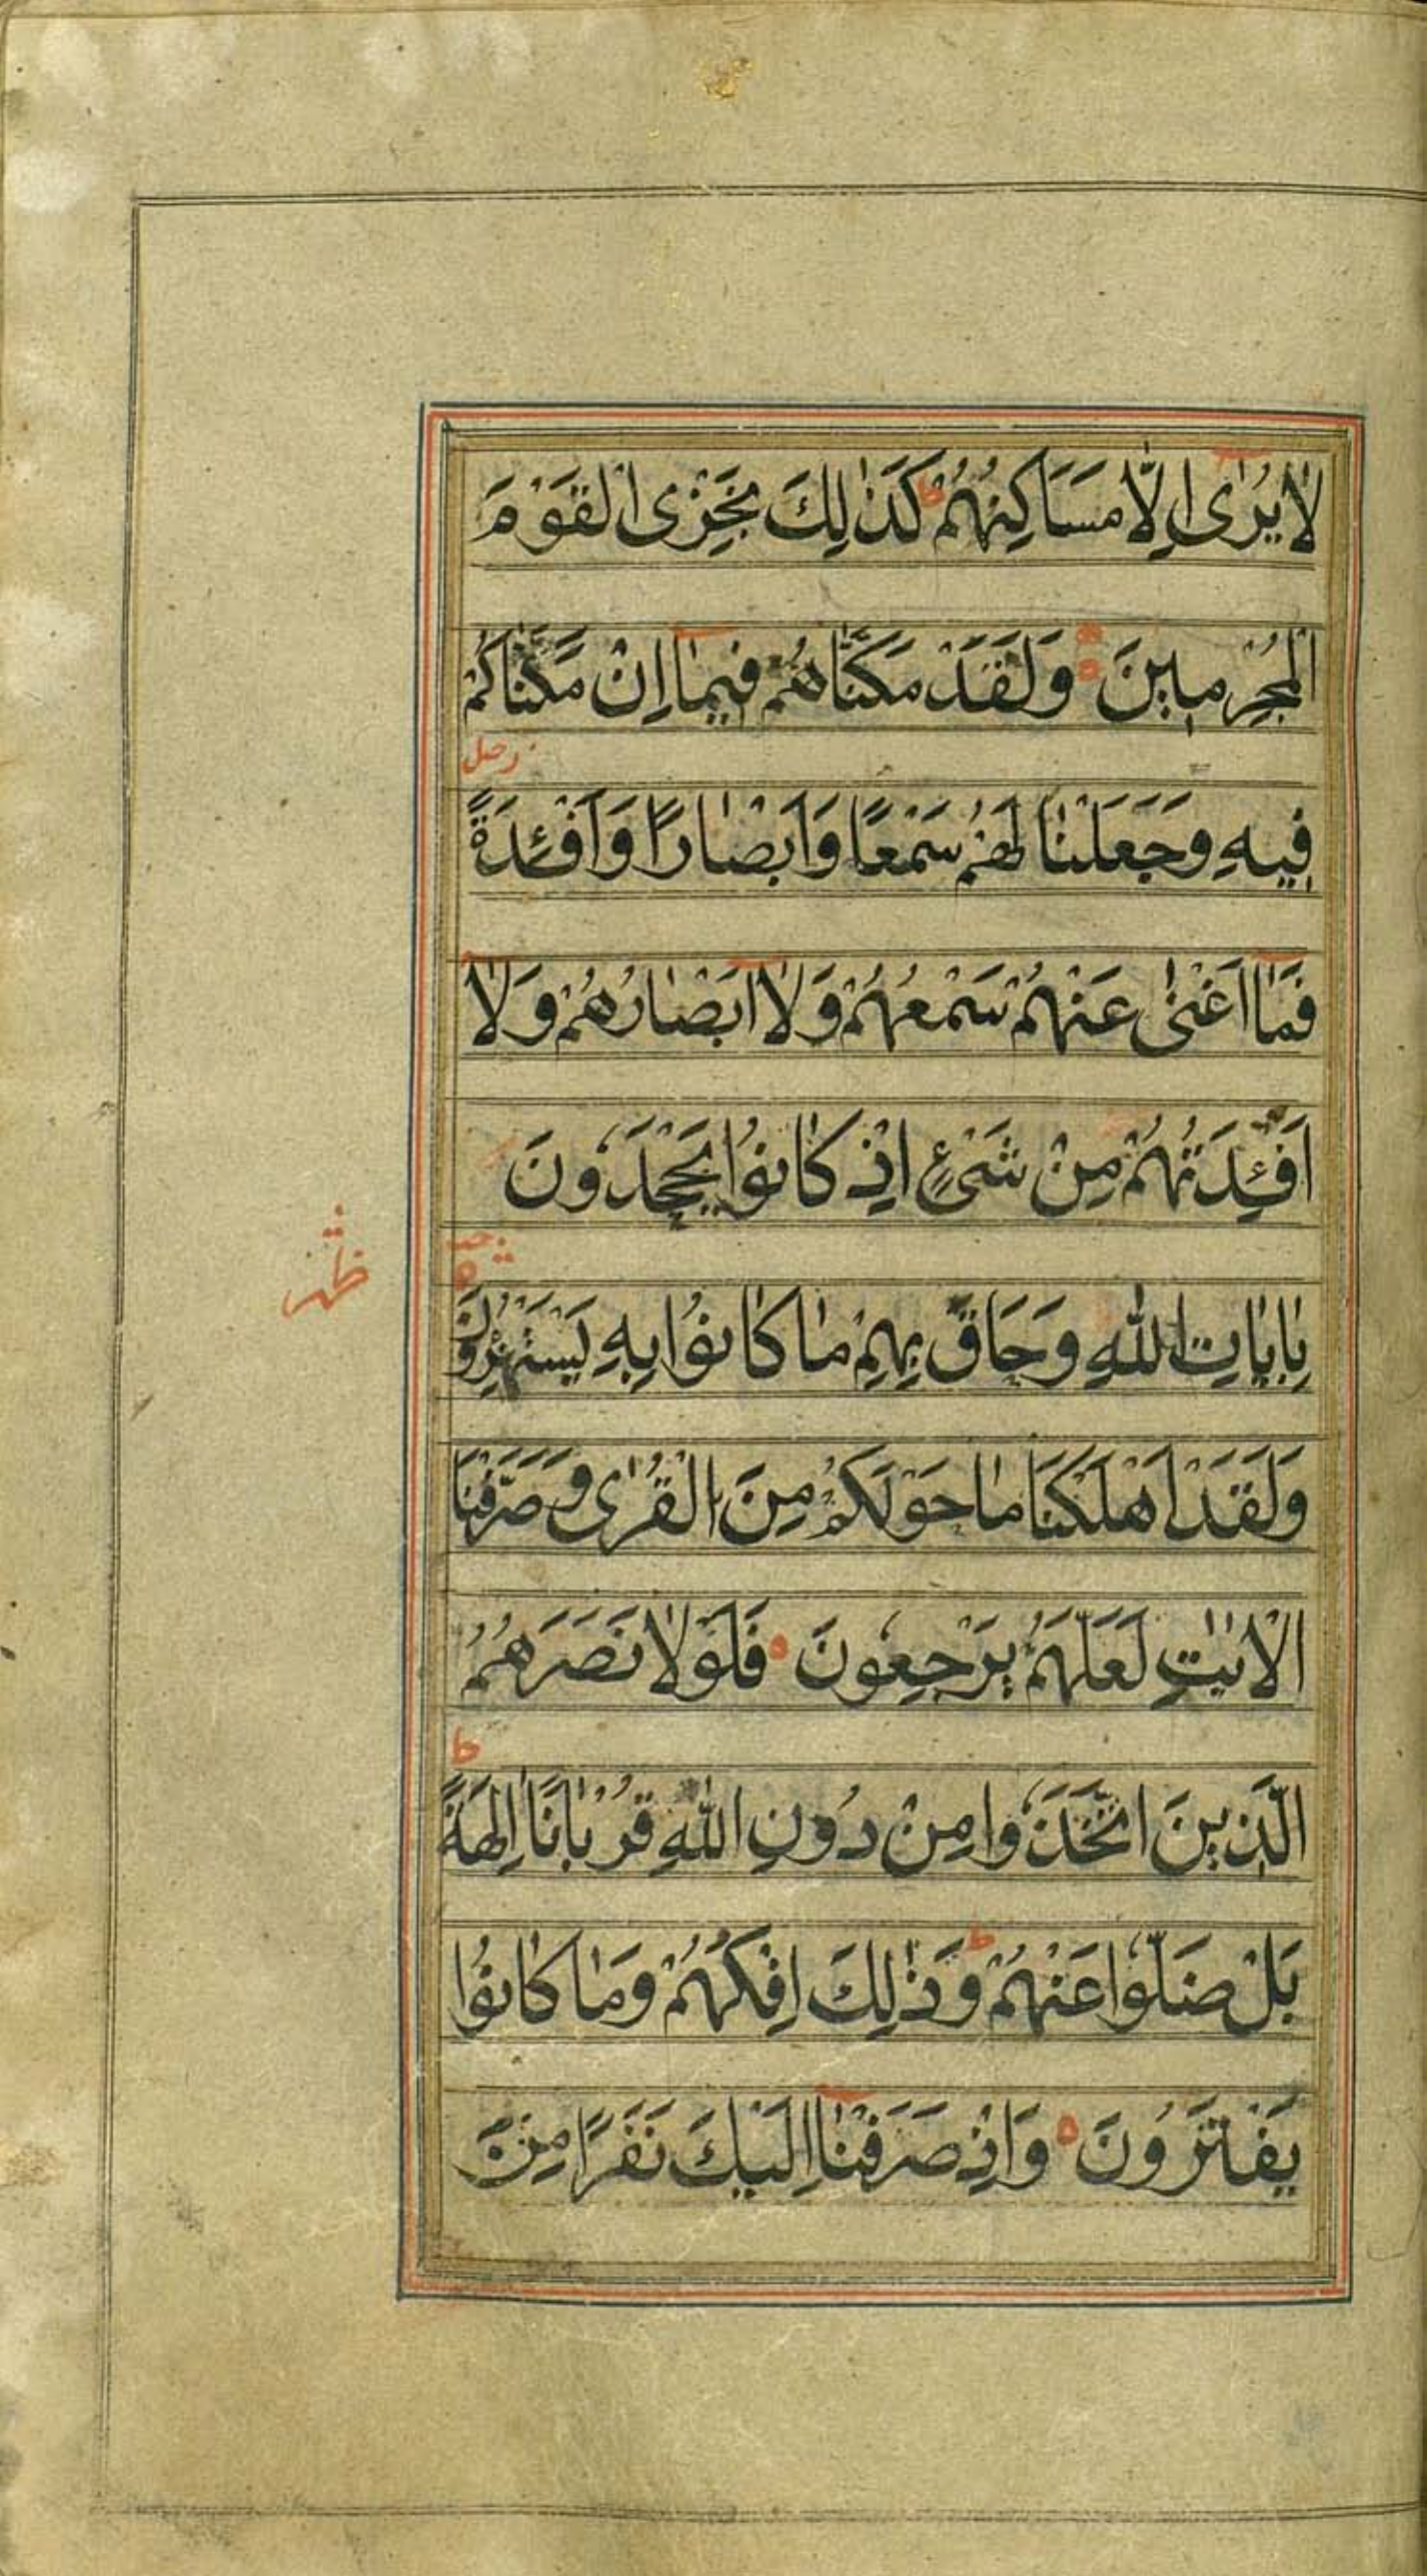 لَا يُرَىٰ اِلَّا مَسَاكِنُهُمْ ط كَذٰلِكَ نَجْزِى الْقَوْمَ
الْمُجْرِمِينَ وَلَقَدْ مَكَّنَّاهُمْ فِيمَا اِنْ مَكَّنَّاكُمْ
فِيهِ وَجَعَلْنَا لَهُمْ سَمْعًا وَاَبْصَارًا وَاَفْئِدَةً
فَمَا اَغْنٰى عَنْهُمْ سَمْعُهُمْ وَلَا اَبْصَارُهُمْ وَلَا
اَفْئِدَتُهُمْ مِنْ شَىْءٍ اِذْ كَانُوا يَجْحَدُونَ
بِاٰيَاتِ اللّٰهِ وَحَاقَ بِهِمْ مَا كَانُوا بِهِ يَسْتَهْزِؤُنَ
وَلَقَدْ اَهْلَكْنَا مَا حَوْلَكُمْ مِنَ الْقُرٰى وَصَرَّفْنَا
الْاٰيٰتِ لَعَلَّهُمْ يَرْجِعُونَ فَلَوْلَا نَصَرَهُمُ
ط
الَّذِينَ اتَّخَذُوا مِنْ دُونِ اللّٰهِ قُرْبَانًا اٰلِهَةً
بَلْ ضَلُّوا عَنْهُمْ ط وَذٰلِكَ اِفْكُهُمْ وَمَا كَانُوا
يَفْتَرُونَ وَاِذْ صَرَفْنَا اِلَيْكَ نَفَرًا مِنَ